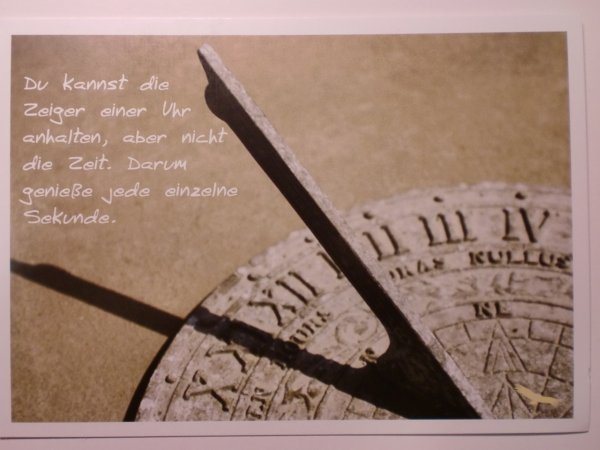 Du kannst die
Zeiger einer Uhr
anhalten, aber nicht
die Zeit. Darum
genieße jede einzelne
Sekunde.
XII I II III IV
HORAS NULLUS
NE